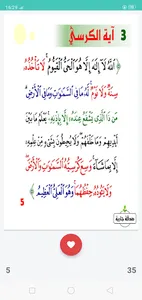 16:29
3 آية الكرسي
﴿ ٱللَّهُ لَآ إِلَٰهَ إِلَّا هُوَ ٱلْحَىُّ ٱلْقَيُّومُ ۚ لَا تَأْخُذُهُۥ
سِنَةٌ وَلَا نَوْمٌ ۚ لَّهُۥ مَا فِى ٱلسَّمَٰوَٰتِ وَمَا فِى ٱلْأَرْضِ ۗ
مَن ذَا ٱلَّذِى يَشْفَعُ عِندَهُۥٓ إِلَّا بِإِذْنِهِۦ ۚ يَعْلَمُ مَا بَيْنَ
أَيْدِيهِمْ وَمَا خَلْفَهُمْ ۖ وَلَا يُحِيطُونَ بِشَىْءٍ مِّنْ عِلْمِهِۦٓ
إِلَّا بِمَا شَآءَ ۚ وَسِعَ كُرْسِيُّهُ ٱلسَّمَٰوَٰتِ وَٱلْأَرْضَ ۖ
وَلَا يَـُٔودُهُۥ حِفْظُهُمَا ۚ وَهُوَ ٱلْعَلِىُّ ٱلْعَظِيمُ ﴾
5
صدقة جارية
5
35